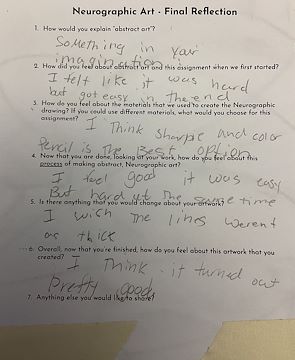 Neurographic Art - Final Reflection
1. How would you explain "abstract art"?
Something in your
imagination
2. How did you feel about abstract art and this assignment when we first started?
I felt like it was hard
but got easy in the end
3. How do you feel about the materials that we used to create the Neurographic
drawing? If you could use different materials, what would you choose for this
assignment?
I Think sharpie and color
Pencil is The Best option
4. Now that you are done, looking at your work, how do you feel about this
process of making abstract, Neurographic art?
I feel good it was easy
But hard at the same time
5. Is there anything that you would change about your artwork?
I wish The lines werent
as thick
6. Overall, now that you're finished, how do you feel about this artwork that you
created?
I Think it turned out
Pretty good
7. Anything else you would like to share?